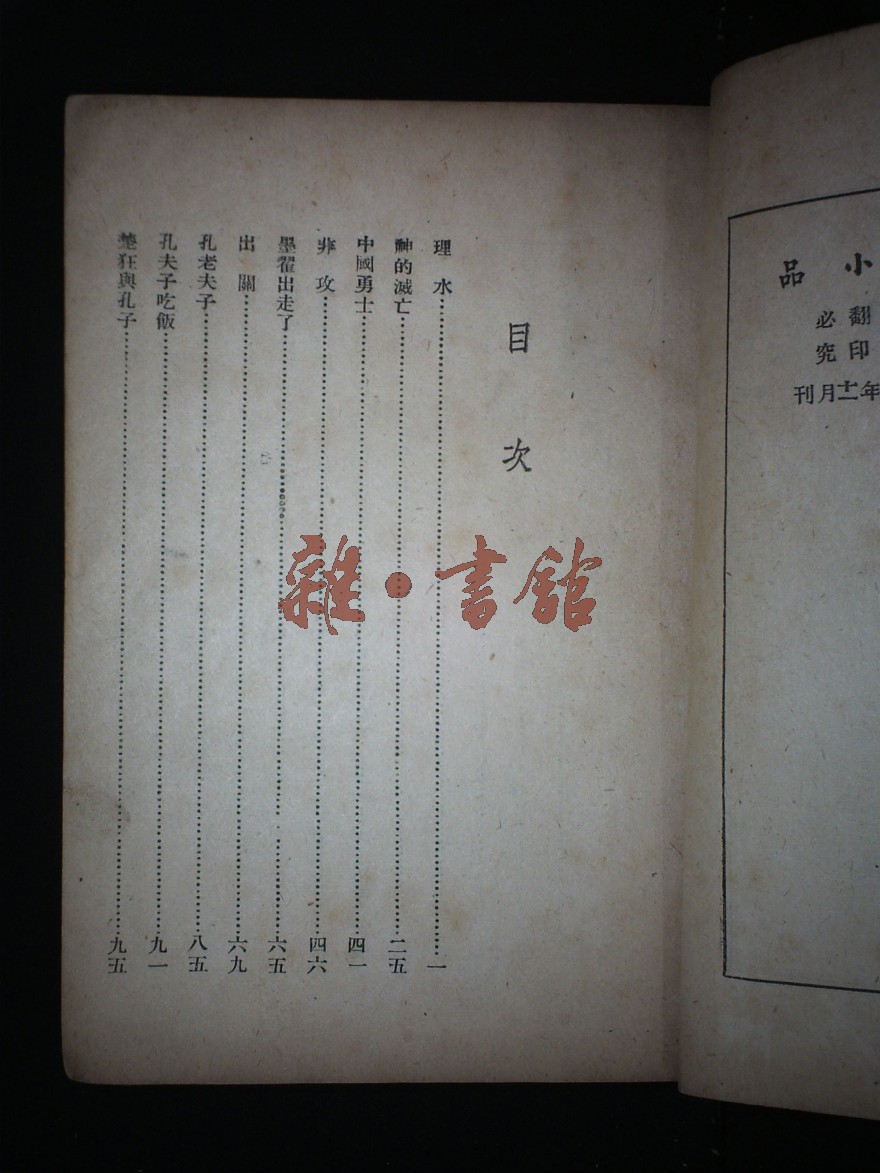 小品
翻印
必究
年十二月刊
目次
理水……一
神的滅亡……二五
中國勇士……四一
非攻……四六
墨翟出走了……六五
出關……六九
孔老夫子……八五
孔夫子吃飯……九一
楚狂與孔子……九五
雜·書館